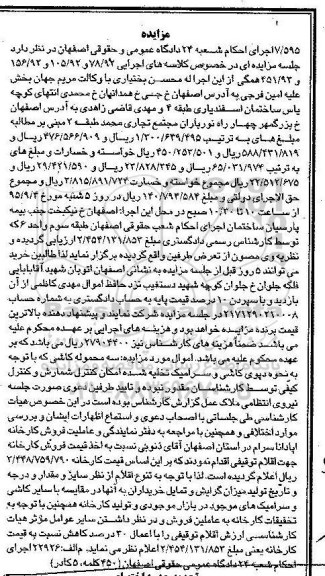 مزایده
۷/۵۹۵اجرای احکام شعبه ۲۴ دادگاه عمومی و حقوقی اصفهان در نظر دارد
جلسه مزایده ای در خصوص کلاسه های اجرایی ۷۸/۹۲ و ۱۰۵/۹۲ و ۱۵۶/۹۲
و ۲۵۱/۹۳ همگی از این اجرا له محسن بختیاری با وکالت مریم جهان بخش
علیه امین فرجی به آدرس اصفهان خ جی خ همدانهان خ محمدی انتهای کوچه
یاس ساختمان اسفندیاری طبقه ۴ و مهدی قاضی زاهدی به آدرس اصفهان
خ بزرگمهر چهار راه نورباران مجتمع تجاری محمد طبقه ۲ مبنی بر مطالبه
مبلغ های به ترتیب ۱/۳۰۰/۶۳۹/۴۹۵ ریال و ۴۷۶/۵۶۶/۹۰۹ ریال و
۵۸۸/۴۳۱/۸۱۹ ریال و ۴۵۰/۲۵۳/۵۰۱ ریال خواسته و خسارات و مبلغ های
به ترتیب ۶۵/۰۳۱/۹۷۴ ریال و ۲۳/۸۲۸/۳۴۵ ریال و ۲۹/۴۲۱/۵۹۰ ریال و
۲۲/۵۱۲/۶۷۵ ریال مجموع خواسته و خسارت ۲/۸۱۵/۸۹۱/۷۲۴ ریال و مجموع
حق الاجرای دولتی و مبلغ ۱۴۰/۷۹۴/۵۸۴ ریال در روز ۵ شنبه مورخ ۹۵/۹/۴
از ساعت ۱۰ تا ۱۰/۳۰ صبح در محل این اجرا: اصفهان خ نیکبخت جنب بیمه
پارسیان ساختمان اجرای احکام شعب حقوقی اصفهان طبقه سوم واحد ۶ که
توسط کارشناس رسمی دادگستری مبلغ ۲/۴۵۴/۱۳۱/۸۵۲ ارزیابی گردیده و
نظریه وی مصون از تعرض طرفین واقع گردیده برگزار نماید لذا طالبین خرید
می توانند ۵ روز قبل از جلسه مزایده به نشانی اصفهان اتوبان شهید آقابابایی
فلکه جلوان خ جلوان کوچه شهید دستغیب نزد حافظ اموال مهدی کاظمی از آن
بازدید و با سپردن ۱۰ درصد قیمت پایه به حساب دادگستری به شماره حساب
۲۱۷۱۲۹۰۲۱۰۰۰۸ در جلسه مزایده شرکت نمایند و پیشنهاد دهنده بالاترین
قیمت برنده مزایده خواهد بود و هزینه های اجرایی بر عهده محکوم علیه
می باشد ضمنا هزینه های کارشناس نیز ۲۷۹۰۴۴۰۰ ریال می باشد که بر
عهده محکوم علیه می باشد. اموال مورد مزایده: سه محموله کاشی که با توجه
به نحوه پیوی کاشی و سرامیک تخلیه شده امکان کنترل شمارش و کنترل
کیفی توسط کارشناسان مقدور نبوده و تایید طرفین دعوی صورت جلسه
نیروی انتظامی ملاک عمل گزارش کارشناس بوده است در این خصوص هیات
کارشناسی طی جلساتی با اصحاب دعوی و استماع اظهارات ایشان و بررسی
موارد اختلافی و همچنین با مراجعه به دفتر نمایندگی و عاملین فروش کارخانه
آبادانا سرام در استان اصفهان آقای ذنوبی نسبت به اخذ قیمت فروش کارخانه
جهت اقلام توقیفی اقدام نمودند که بر این اساس قیمت کارخانه ۲/۴۴۸/۷۵۹/۷۹۰
ریال اعلام گردیده است. لذا با توجه به تنوع اقلام از نظر سایز و مقدار و درجه
و تاریخ تولید میزان گرایش و تمایل خریداران به آنها در مقایسه با سایر کاشی
و سرامیک های موجود در بازار موجودی و تولید کارخانه همچنین با توجه به
تخفیفات کارخانه به عاملین فروش و در نظر داشتن سایر عوامل مؤثر هیات
کارشناسی ارزش اقلام توقیفی را با اعمال ۳۰ درصد کاهش نسبت به قیمت
کارخانه یعنی مبلغ ۲/۴۵۴/۱۳۱/۸۵۲ اعلام نظر می نماید. م الف: ۲۲۹۲۶ اجرای
احکام شعبه ۲۴ دادگاه عمومی حقوقی اصفهان (۴۵۰ کلمه، ۵ کادر)